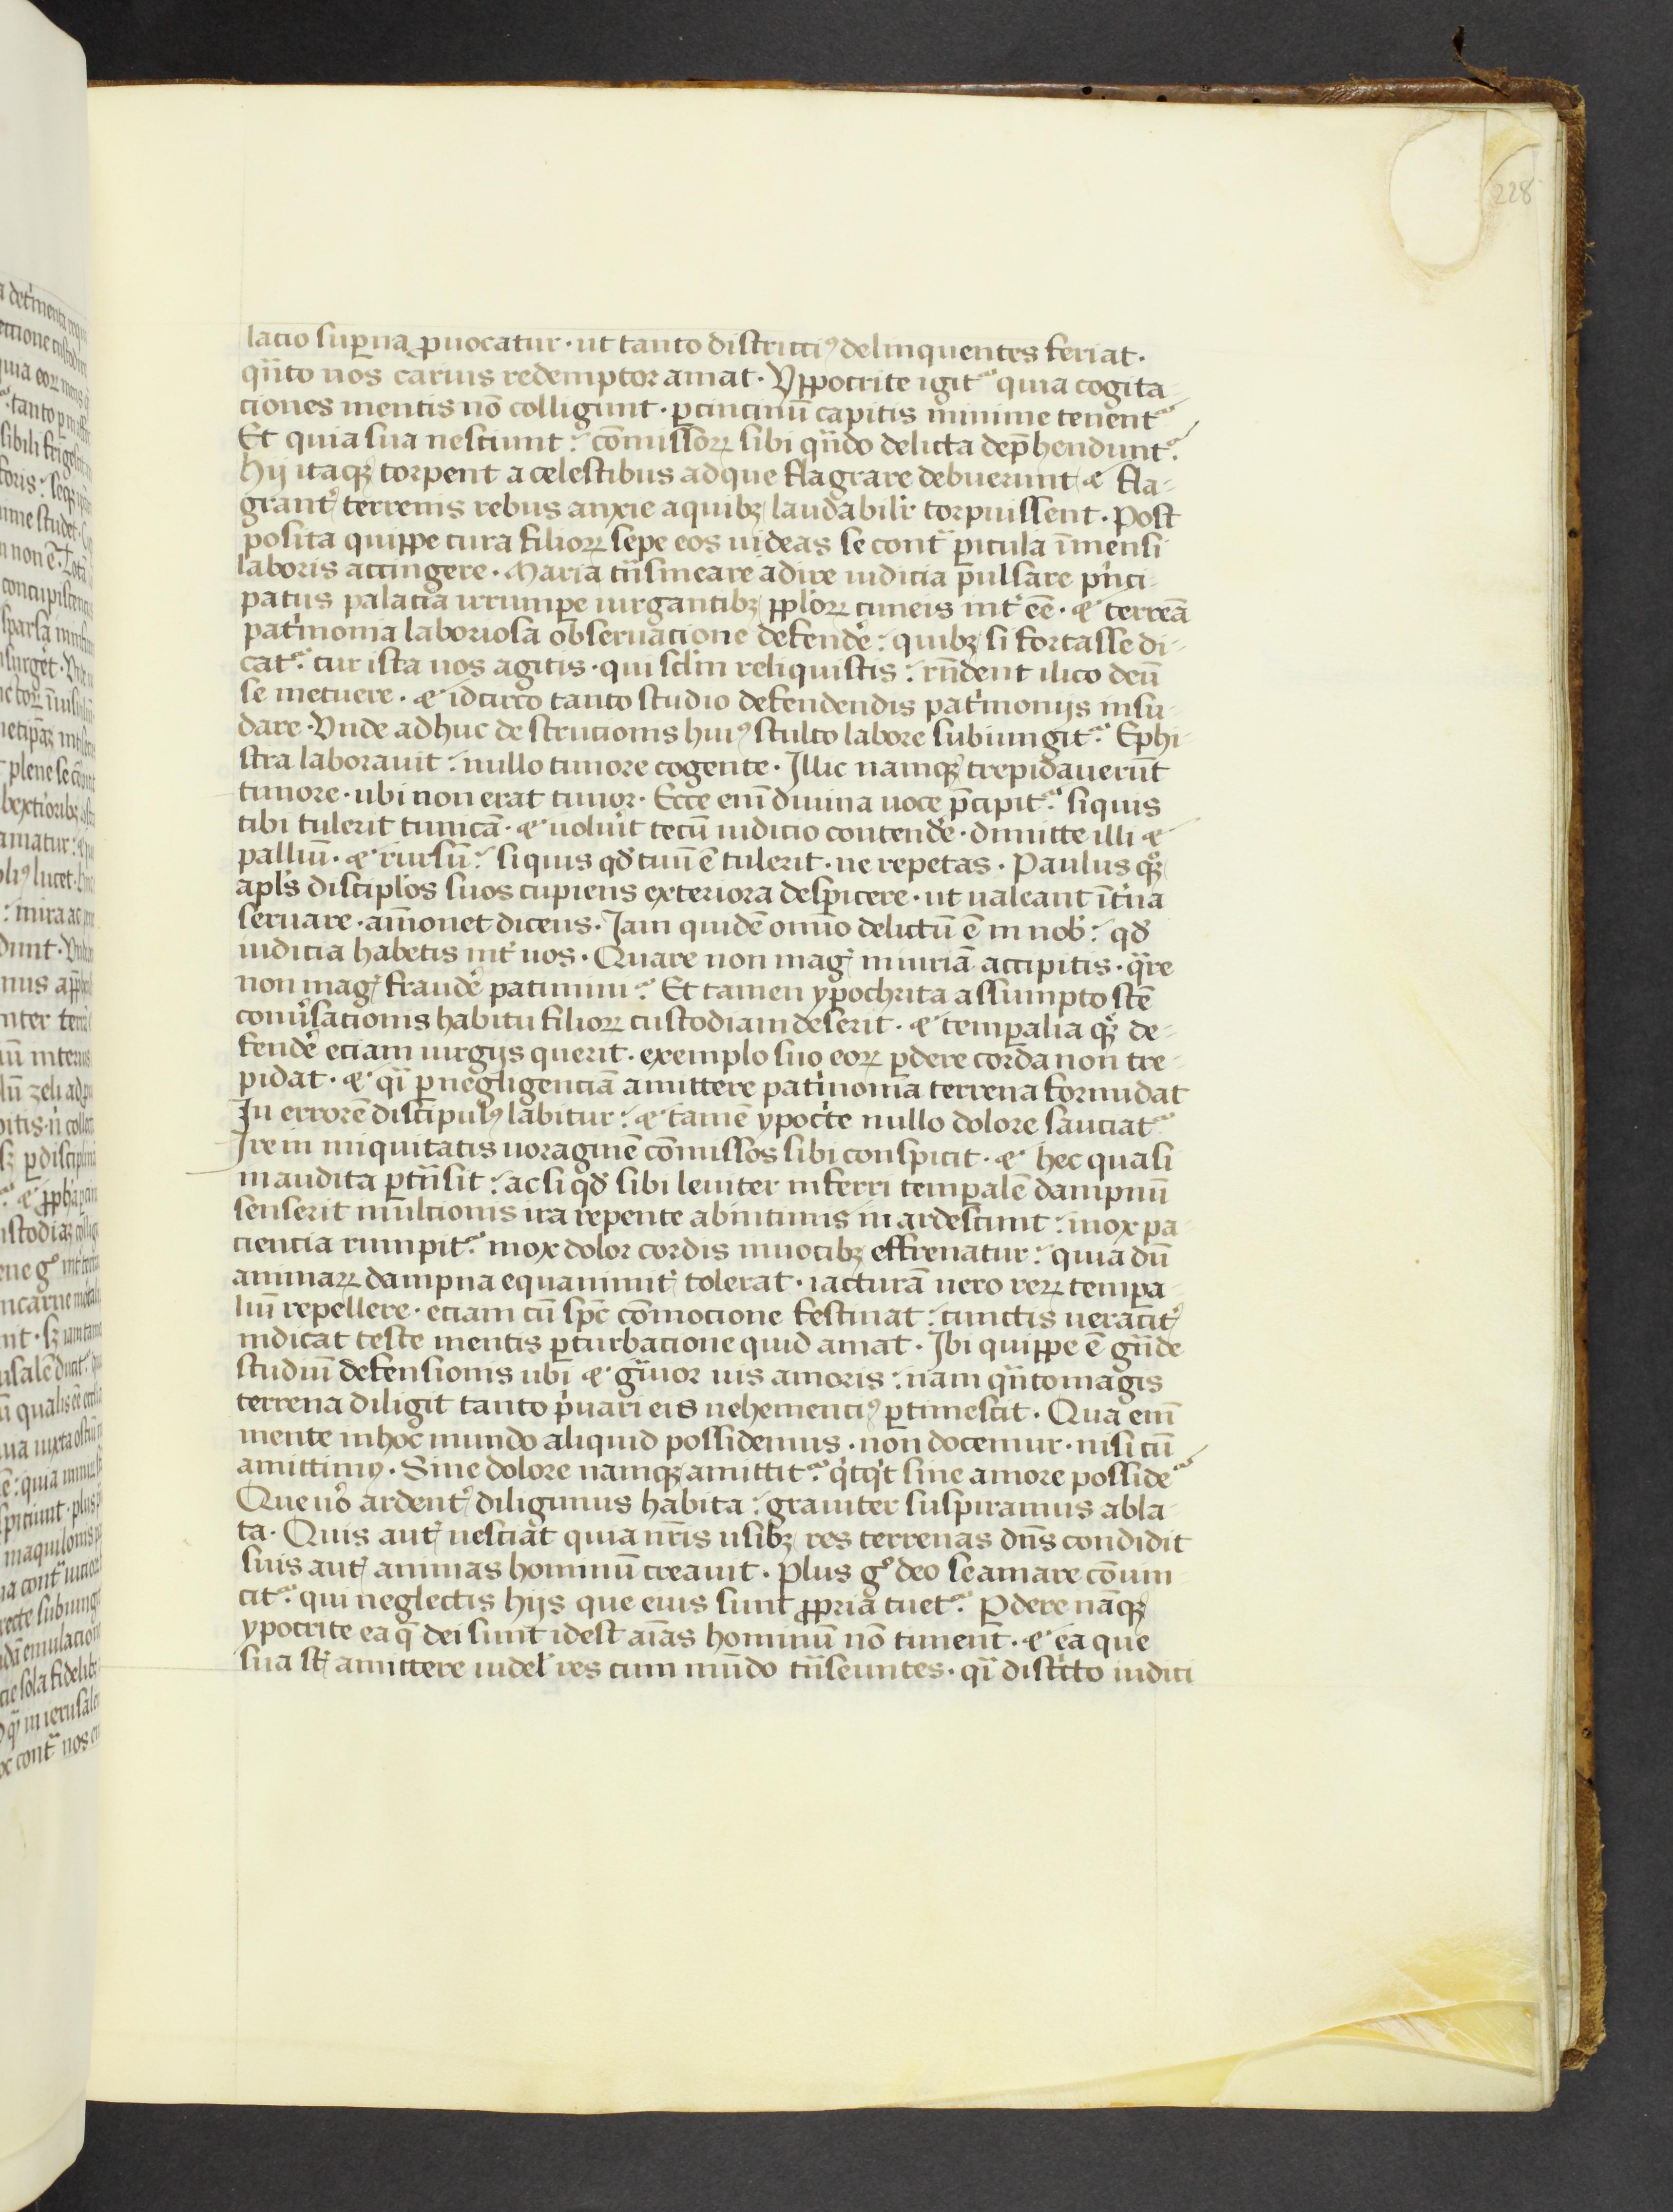 228
lacio suꝑna ꝓuocatur · ut tanto districciꝰ delinquentes feriat ·
qͣnto nos carius redemptor amat · Yppocrite igit᷑ quia cogita
ciones mentis nō colligunt · ꝑ cincinū capitis minime tenent᷑
Et quia sua nesciunt : cōmissoꝝ sibi qͣndo delicta dep̄hendunt᷑
hij itaqꝫ torpent a celestibus ad que flagrare debuerunt ⁊ fla-
grant᷑ terrenis rebus anxie a quibꝫ laudabilr̄ torpuissent · Post
posita quippe cura filioꝝ sepe eos uideas se contͣ ꝑicula īmensi
laboris accingere · Maria tͣnsmeare adire iudicia p̄ulsare pͥnci-
patus palacia irrumpe iurgantibꝫ pplo̅ꝝ cuneis int᷑ eē · ⁊ terrea
patͥmonia laboriosa obseruacione defende᷑ : quibꝫ si fortasse di-
cat᷑ cur ista uos agitis · qui scl̄m reliquistis : rn̄dent ilico deū
se metuere · ⁊ idcirco tanto studio defendendis patͥmonijs insu-
dare · Vnde adhuc de strucionis huiꝰ stulto labore subiungit᷑ Ephi
stra laborauit : nullo timore cogente · Illic namqꝫ trepidauerūt
timore · ubi non erat timor · Ecce eni᷑ diuina uoce p̄cipit᷑ si quis
tibi tulerit tunicā · ⁊ uolu᷑it tecū iudicio contende᷑ · dimitte illi ⁊
palliū · ⁊ rursū : si quis qd̄ tuū ē tulerit · ne repetas · Paulus qͦꝫ
apl̄s discipl̄os suos cupiens exteriora despicere · ut ualeant īt᷑na
seruare · āmonet dicens · Iam quidē omīo delictū ē in nob᷑ : qd̄
iudicia habetis int᷑ uos · Quare non mag᷑ iniuriā accipitis · qͣre
non mag᷑ fraude᷑ patimini : Et tamen ypochrita assumpto scē
conu᷑sacionis habitu filioꝝ custodiam deserit · ⁊ temꝑalia qͦꝫ de-
fende᷑ eciam iurgijs querit · exemplo suo eoꝝ ꝑdere corda non tre-
pidat · ⁊ qͣi ꝑ negligenciā amittere patͥmonia terrena formidat
In errorē discipulꝰ labitur : ⁊ tamē ypocͥte nullo dolore sauciat᷑
Ire in iniquitatis uoraginē cōmissos sibi conspicit · ⁊ hec quasi
inaudita ꝑtͣnsit : ac si qd̄ sibi leuiter inferri temꝑalē dampnū
senserit multionis ira repente ab intimis inardescunt : mox pa
ciencia rumpit᷑ mox dolor cordis in uocibꝫ effrenatur : quia dū
animaꝝ dampna equanimit᷑ tolerat · iacturā uero reꝝ tempa-
liū repellere · eciam cū spc̄ cōmocione festinat : cunctis ueracit᷑
indicat teste mentis ꝑturbacione quid amat · Ibi quippe ē gͣnde
studiū defensionis ubi ⁊ gͣuior uis amoris : nam qͣnto magis
terrena diligit tanto pͥuari eis uehemenciꝰ ꝑtimescit · Qua eni᷑
mente in hoc mundo aliquid possidemus · non docemur · nisi cū
amittimꝰ · Sine dolore namqꝫ amittit᷑ qͥcqͥt sine amore posside᷑
Que uͦo ardent᷑ diligimus habita : grauiter suspiramus abla-
ta · Quis aut᷑ nesciat quia nr̄is usibꝫ res terrenas dn̄s condidit
suis aut᷑ animas hominū creauit · Plus gͦ deo se amare cōuin
cit᷑ qui neglectis hijs que eius sunt ꝓpria tuet᷑ Ꝑdere nāqꝫ
ypocrite ea q̄ dei sunt idest aīas hominū nō timent · ⁊ ea que
sua st᷑ amittere uidel᷑ res cum mūdo tͣnseuntes · qͣi distͥcto iudici